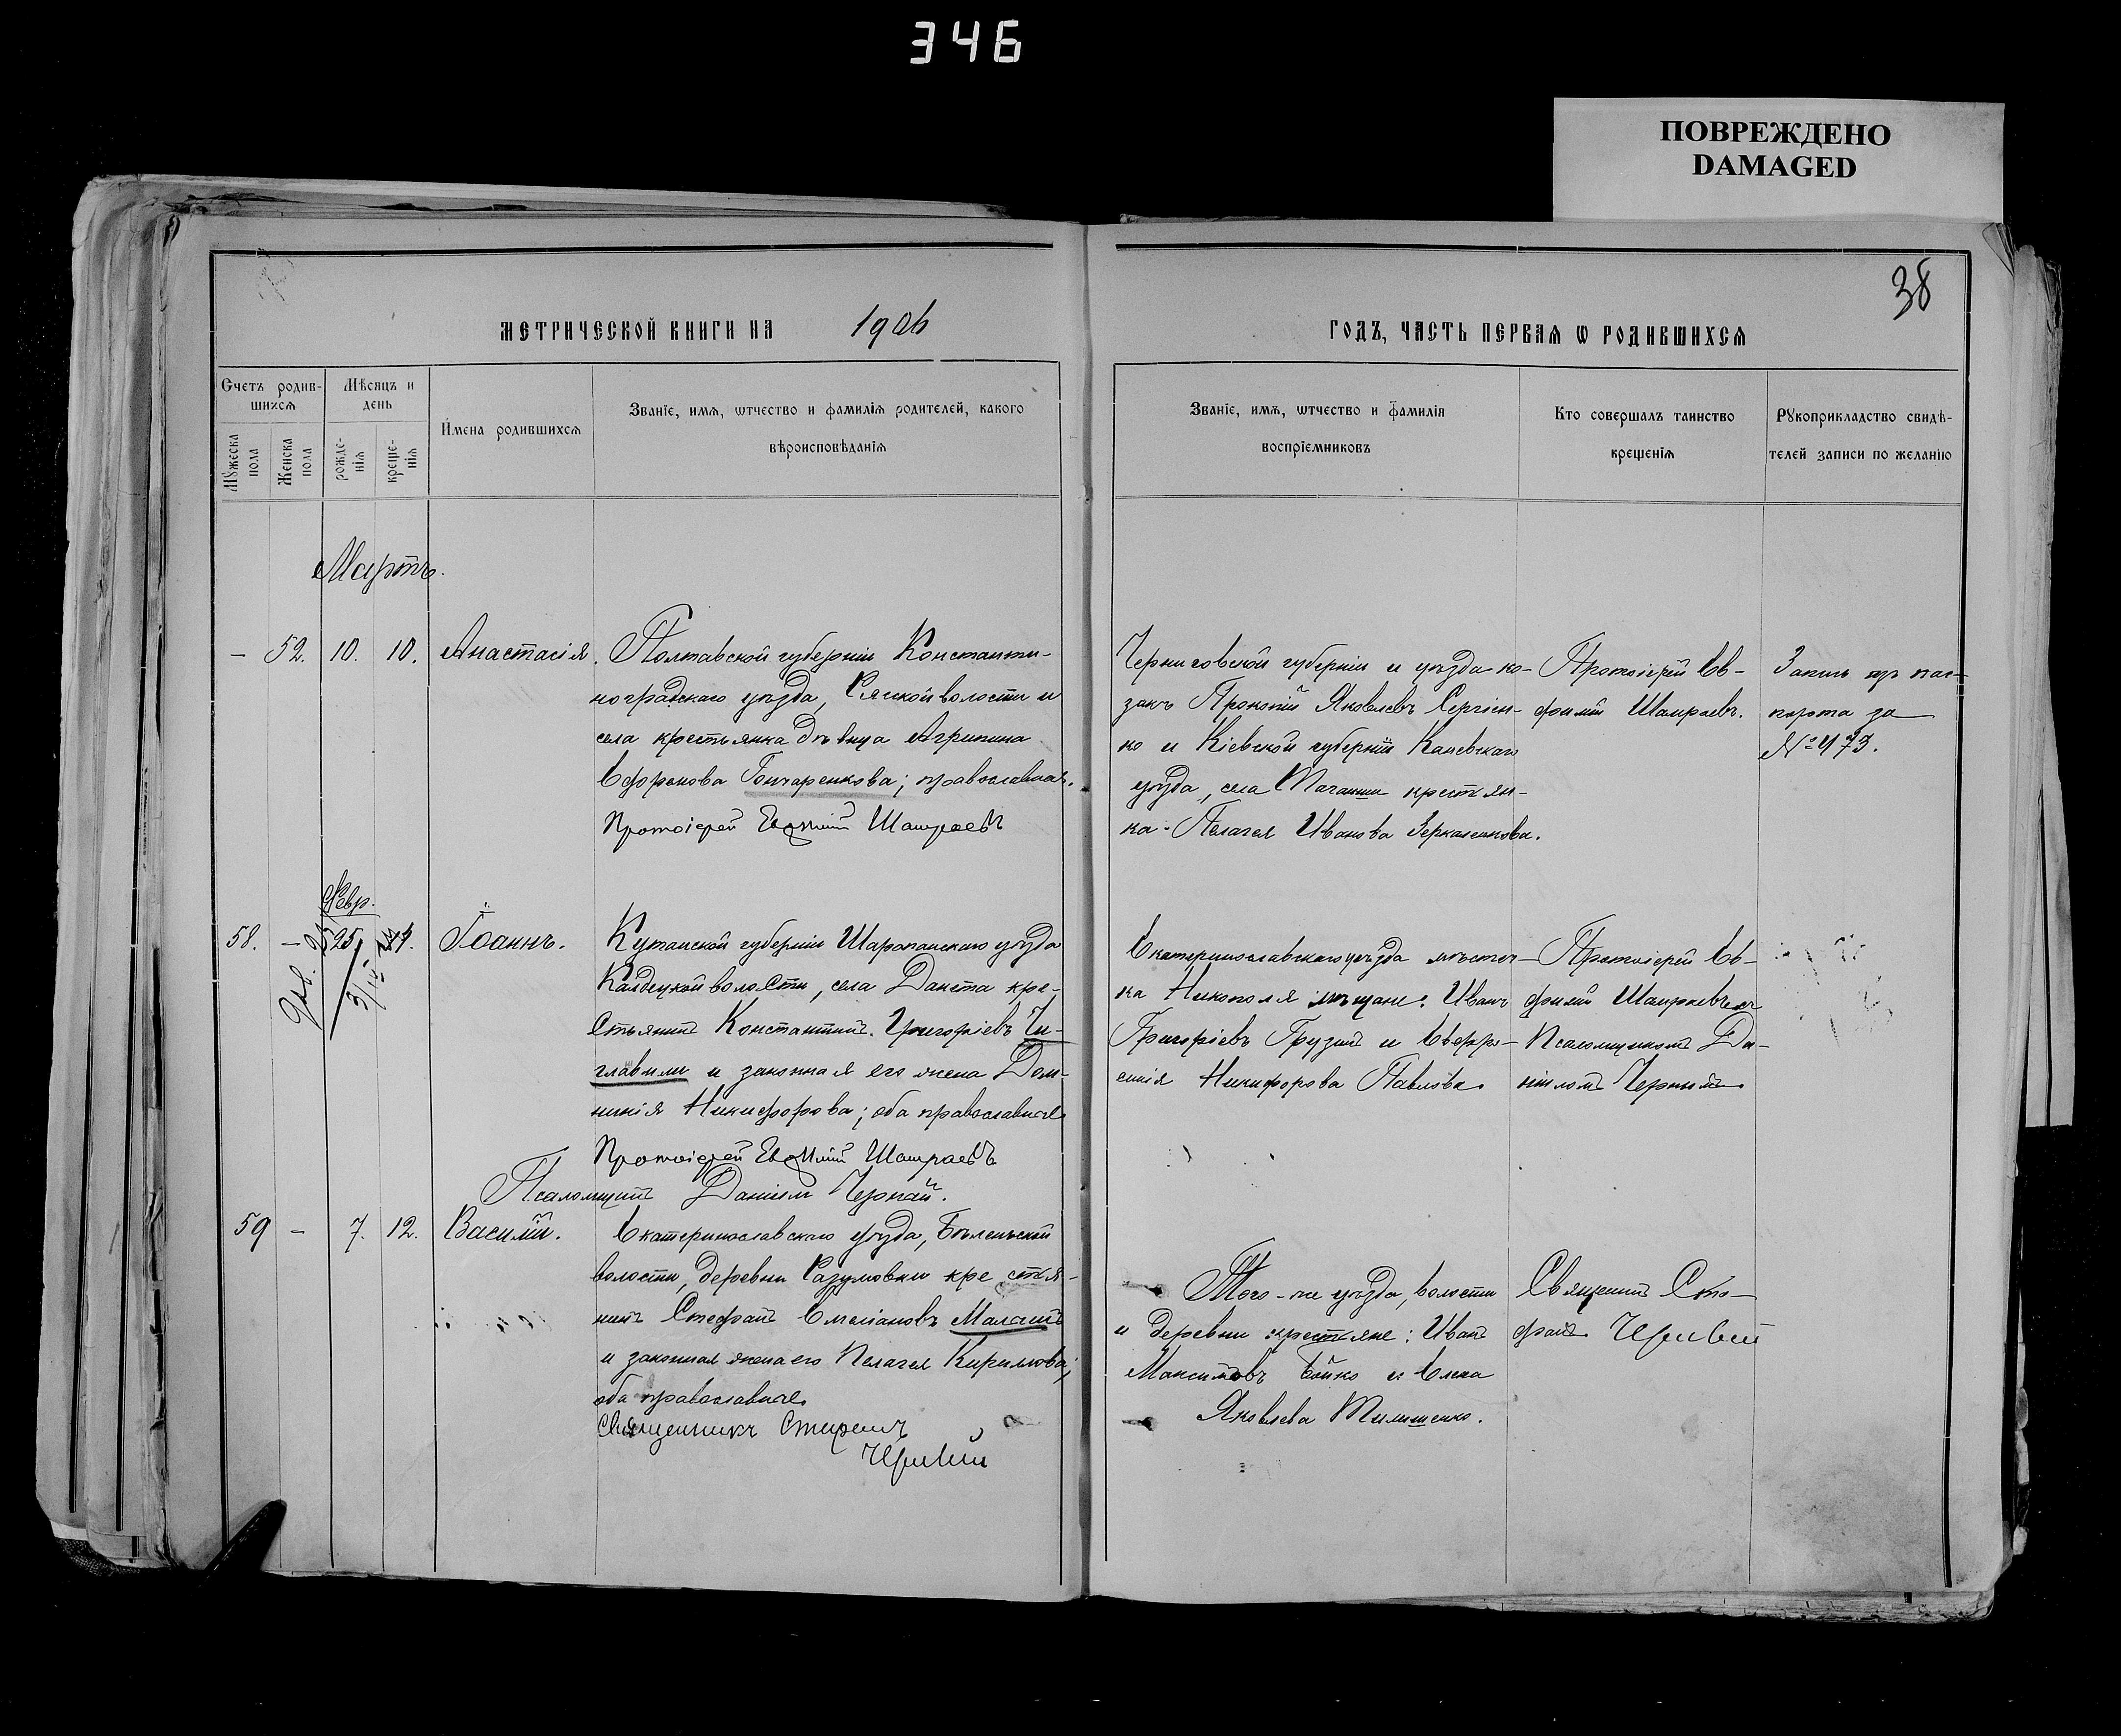 346
ПОВРЕЖДЕНО
DAMAGED
38
МЕТРИЧЕСКОЙ КНИГИ НА 1906
ГОДЪ, ЧАСТЬ ПЕРВАЯ Ѡ РОДИВШИХСЯ
Счетъ родив-
шихся
Мѣсяцъ и
день
Мужеска
пола
Женска
пола
рожде-
нія
креще-
нія
Имена родившихся
Званіе, имя, ѡтчество и фамилія родителей, какого
вѣроисповѣданія
Званіе, имя, ѡтчество и фамилія
воспріемниковъ
Кто совершалъ таинство
крещенія
Рукоприкладство свидѣ-
телей записи по желанію
Мартъ.
— 52. 10. 10. Анастасія.
Полтавской губерніи Константи-
ноградскаго уѣзда, волости и
села крестьянка дѣвица Агрипина
Гончаренкова; православная.
Протоіерей Евѳимій Шамраевъ
Черниговской губерніи и уѣзда ко-
закъ Прокопій Яковлевъ Сергіен-
ко и Кіевской губерніи Каневскаго
уѣзда, села крестьян-
ка Пелагея Иванова
Протоіерей Ев-
фимій Шамраевъ.
Запись изъ пас-
порта за
№ 473.
Февр.
58. — 25 Іоаннъ.
Кутаиской губерніи Шаропанскаго уѣзда
волости, села кре-
стьянинъ Константинъ Григоріевъ Чи-
главили и законная его жена Дом-
никія Никифорова; оба православные
Протоіерей Евѳимій Шамраевъ
Псаломщикъ Даніилъ Черпай.
Екатеринославскаго уѣзда мѣстеч-
ка Никополя мѣщане: Иванъ
Григоріевъ Грузинъ и Евфро-
синія Никифорова Павлова.
Протоіерей Ев-
фимій Шамраевъ съ
Псаломщикомъ Да-
ніиломъ
59 — 7. 12. Василій.
Екатеринославскаго уѣзда, Бѣленьской
волости, деревни Разумовки крестья-
нинъ Стефанъ Емеліановъ
и законная жена его Пелагея Кириллова;
оба православные
Священникъ Стефанъ
Того-же уѣзда, волости
и деревни крестьяне: Иванъ
Максимовъ Бойко и Елена
Яковлева Тимошенко.
Священникъ Сте-
фанъ